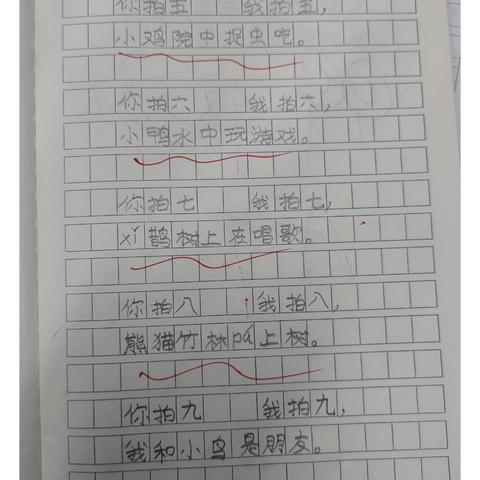 你拍五 我拍五,
小鸡院中捉虫吃。
你拍六 我拍六,
小鸭水中玩游戏。
你拍七 我拍七,
xǐ鹊树上在唱歌。
你拍八 我拍八,
熊猫竹林pá上树。
你拍九 我拍九,
我和小鸟是朋友。